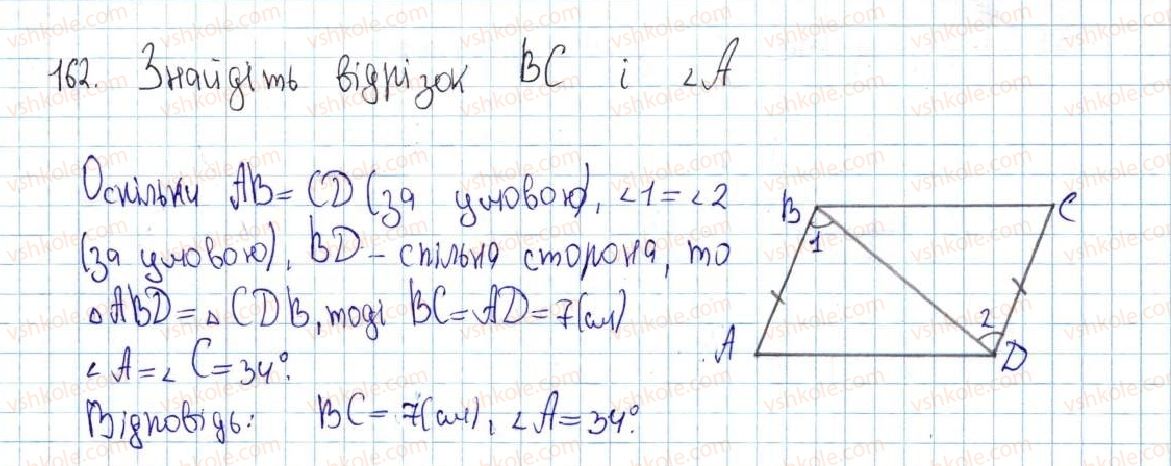 162. Знайдіть відрізок BC і ∠A
Оскільки AB = CD (за умовою), ∠1 = ∠2
(за умовою), BD – спільна сторона, то
△ABD = △CDB, тоді BC = AD = 7(см)
∠A = ∠C = 34°.
Відповідь: BC = 7(см), ∠A = 34°.
B
C
1
2
A
D
vshkole.com